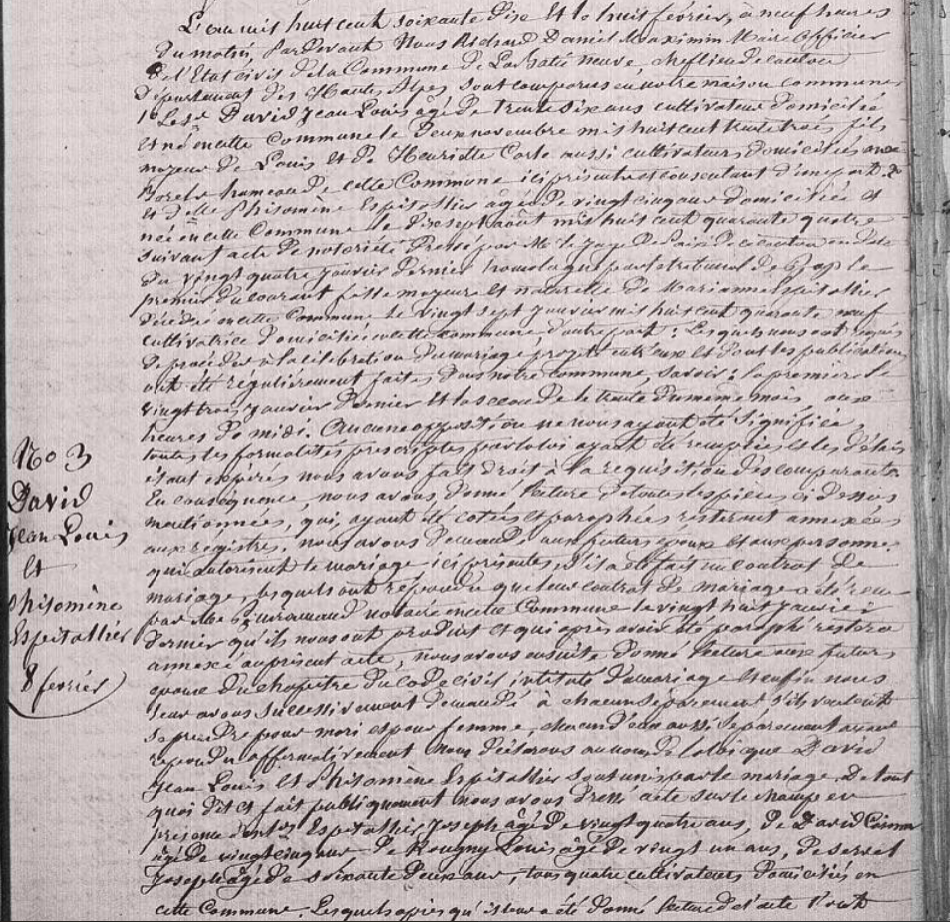 L'an mil huit cent soixante dix et le huit février, à neuf heures
du matin, Pardevant Nous Richard Daniel Maximin Maire officier
de l'Etat civil de la Commune de La Batie neuve, chef lieu de canton
Département des Hautes Alpes sont comparus en notre maison commune
1º Le Sr David Jean Louis âgé de trente six ans cultivateur domicilié
et né en cette Commune le deux novembre mil huit cent trente trois fils
majeur de Louis et de Henriette Corte aussi cultivateurs domiciliés aux
Borels hameau de cette Commune ici présents et consentant d'une part. 2º
Et Delle Philomène Espitallier âgée de vingt cinq ans domiciliée et
née en cette Commune le dix sept août mil huit cent quarante quatre
suivant acte de notoriété dressé par Mr le juge de Paix de ce canton en date
du vingt quatre janvier dernier homologué par le tribunal de Gap le
premier du courant fille majeure et naturelle de Marianne Espitallier
décédée en cette Commune le vingt sept janvier mil huit cent quarante neuf
cultivatrice domiciliée en cette commune d'autre part : Lesquels nous ont requis
de procéder à la célébration du mariage projeté entr'eux et dont les publications
ont été régulièrement faites dans notre commune, savoir : la première le
vingt trois janvier dernier et la seconde le trente du même mois, aux
heures de midi. Aucune opposition ne nous ayant été signifiée,
toutes les formalités prescriptes par la loi ayant été remplies et les délais
étant expirés nous avons fait droit à la requisition des comparants
En conséquence, nous avons donné lecture de toutes les pièces ci dessus
mentionnées, qui, ayant été cotées et paraphées resteront annexées
aux régistres, nous avons demandé aux futurs époux et aux personnes
qui autorisent le mariage ici présentes, s'il a été fait un contrat de
mariage, lesquels ont répondu que leur contrat de mariage a été reçu
par Me notaire en cette Commune le vingt huit janvier
dernier qu'ils nous ont produit et qui après avoir été paraphé restera
annexé au présent acte, nous avons ensuite donné lecture aux futurs
époux du chapitre du code civil intitulé du mariage et enfin nous
leur avons successivement demandé à chacun séparément s'ils veulent
se prendre pour mari et pour femme, chacun d'eux aussi séparément ayant
répondu affirmativement nous déclarons au nom de la loi que David
Jean Louis et Philomène Espitallier sont unis par le mariage. De tout
quoi dit et fait publiquement nous avons dressé acte sur le champ en
présence des Espitallier Joseph âgé de vingt quatre ans, de David
âgé de vingt cinq ans de Rougny Louis âgé de vingt un ans, de
Joseph âgé de soixante deux ans, tous quatre cultivateurs domiciliés en
cette Commune. Lesquels après qu'il leur a été donné lecture de l'acte l'ont
No 3
David
Jean Louis
et
Philomène
Espitallier
8 février